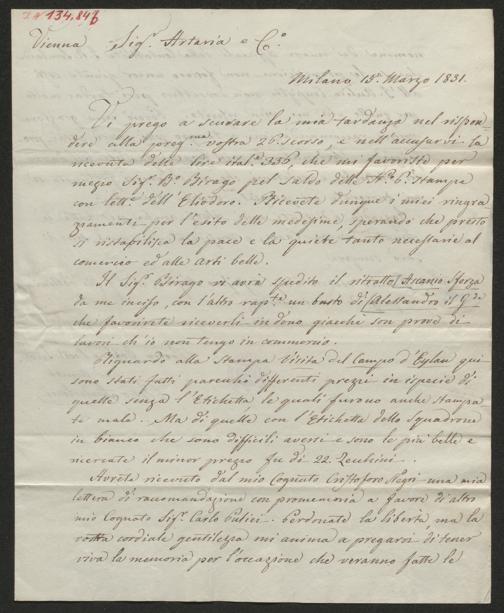 134.846
Vienna Sig.ri Artaria e C.o
Milano 15 Marzo 1831.
Vi prego a scusare la mia tardanza nel rispon-
dere alla preg.ma vostra 26 scorso, e nell'accusarvi la
ricevuta delle lire ital.e 336, che mi favoriste per
mezzo Sig.r B.o Birago pel saldo delle N.o 6 Stampe
con lett.e dell'Eliodoro. Ricevete dunque i miei ringra
ziamenti per l'esito delle medesime, sperando che presto
si ristabilisca la pace e la quiete tanto necessarie al
comercio ed alle arti belle.
Il Sig.r Birago vi avrà spedito il ritratto Ascanio Sforza
da me inciso, con l'altro rap.te un busto di Alessandro il G.de
che favorirete riceverli in dono giacchè son prove di
lavori ch'io non tengo in commercio.
Riguardo alla Stampa Visita del Campo d'Eylau qui
sono stati fatti parecchi differenti prezzi in ispecie di
quelle senza l'Etichetta le quali furono anche stampa
te male. Ma di quelle con l'Etichetta dello Squadrone
in bianco che sono difficili aversi e sono le più belle e
ricercate il minor prezzo fu di 22. Zecchini.
Avrete ricevuto dal mio Cognato Cristoforo Negri una mia
lettera di raccomandazione con promemoria a favore di altro
mio Cognato Sig.r Carlo . Perdonate la libertà, ma la
vostra cordiale gentilezza mi anima a pregarvi di tener
viva la memoria per l'occasione che verranno fatte le